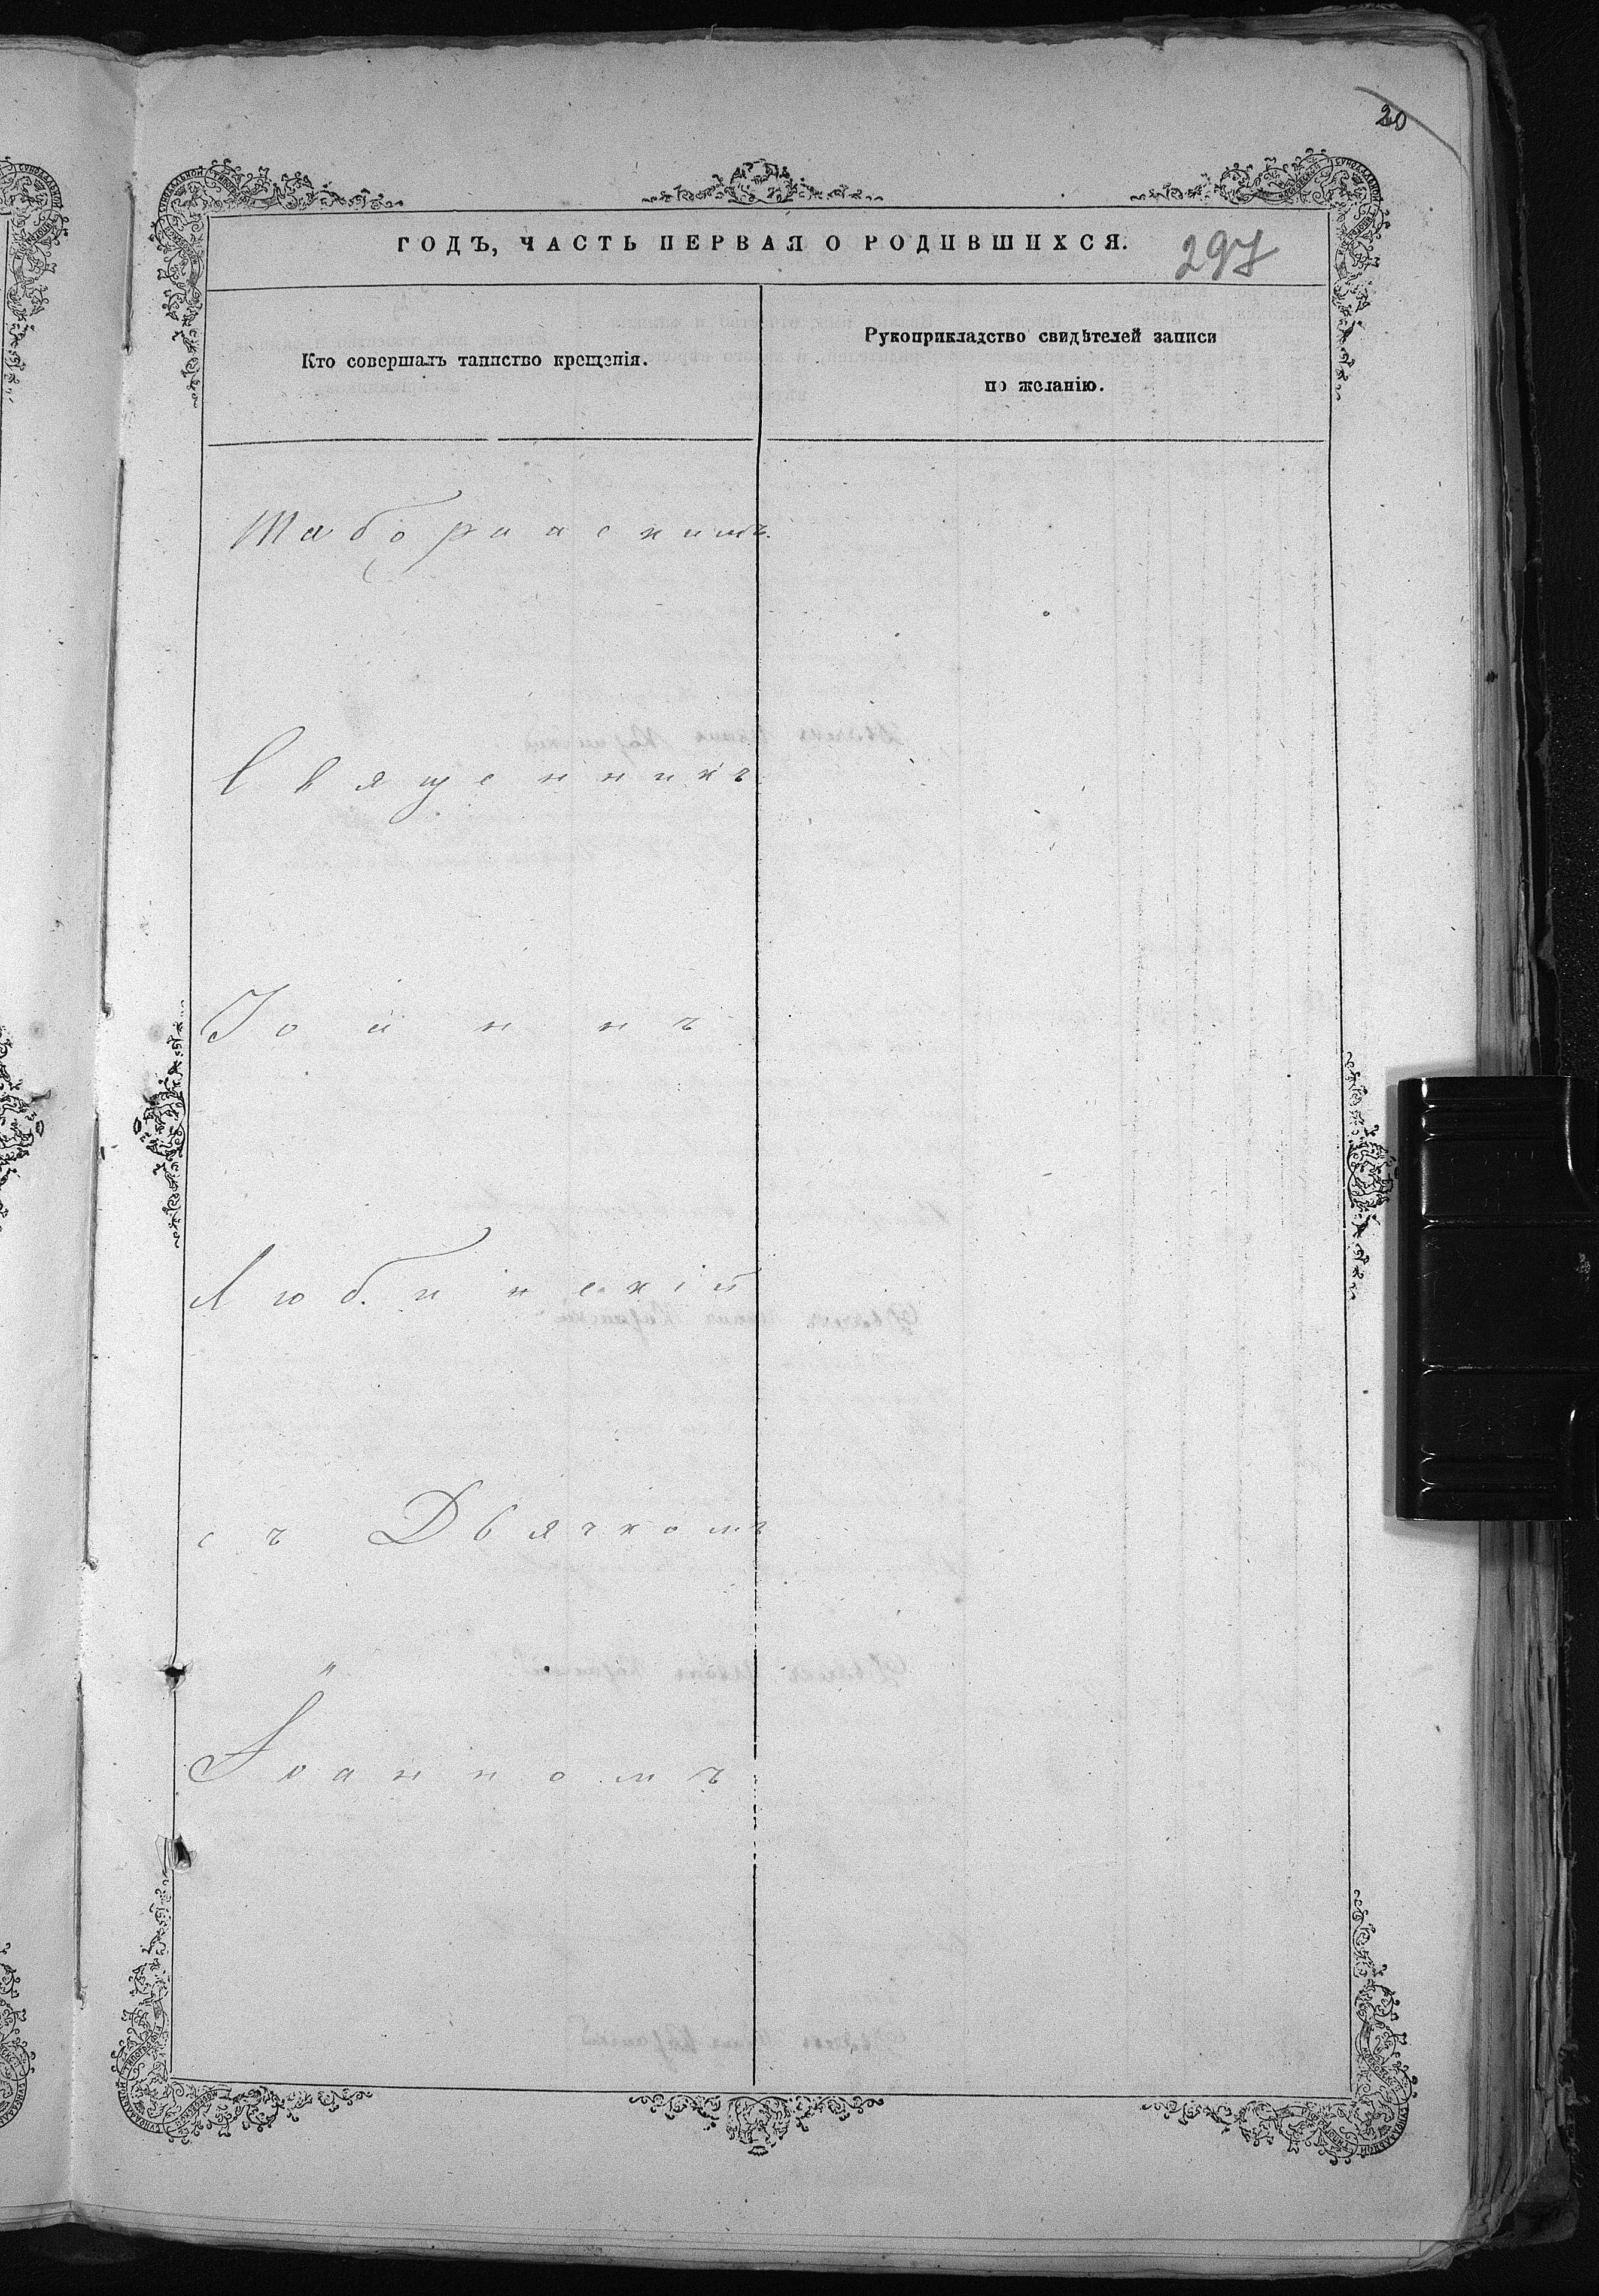 20
ГОДЪ, ЧАСТЬ ПЕРВАЯ О РОДИВШИХСЯ.
297
Кто совершалъ таинство крещенія.
Рукоприкладство свидѣтелей записи
по желанію.
Священникъ
Іоаннъ
Любинскій
съ Дьячкомъ
Іоанномъ